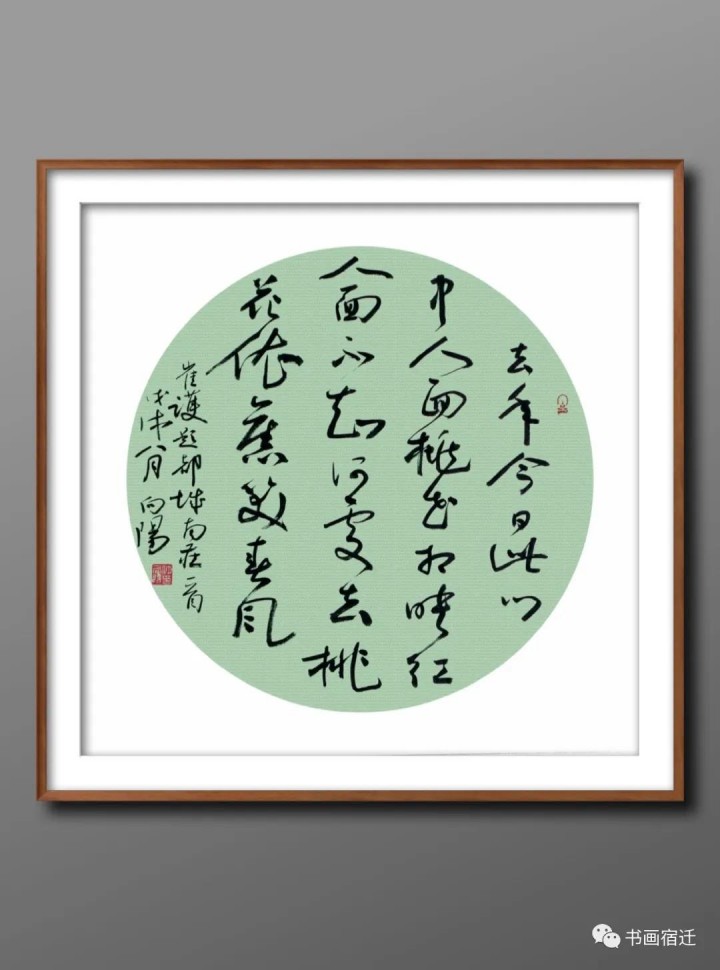 去年今日此门
中人面桃花相映红
人面不知何處去桃
花依舊笑春风
崔護题都城南莊一首
戊戌八月向陽
书画宿迁